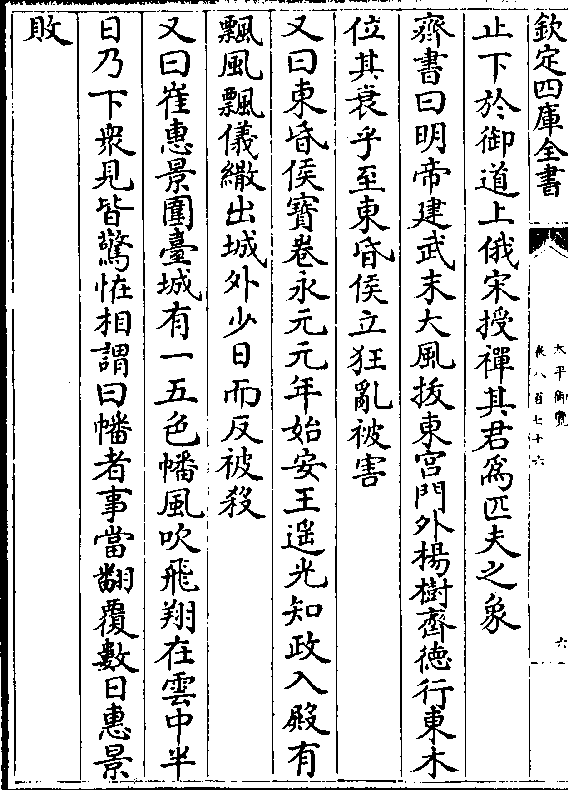 欽定四庫全書
太平御覽
卷八百七十六
六
止下於御道上俄宋授禪其君為匹夫之象
齊書曰明帝建武末大風拔東宫門外楊樹齊徳行東木
位其衰乎至東昏侯立狂亂被害
又曰東昏侯寳卷永元元年始安王遥光知政入殿有
飄風飄儀繖出城外少日而反被殺
又曰崔惠景圍臺城有一五色幡風吹飛翔在雲中半
日乃下衆見皆驚恠相謂曰幡者事當翻覆數日惠景
敗